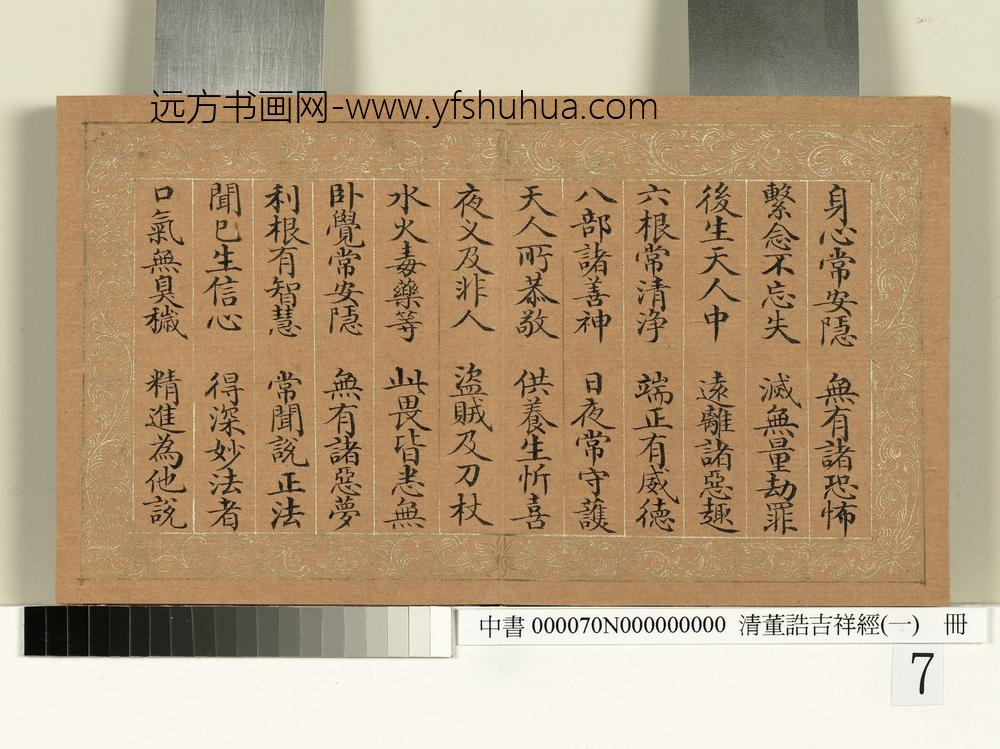 远方书画网-www.yfshuhua.com
身心常安隱 無有諸恐怖
繫念不忘失 滅無量劫罪
後生天人中 遠離諸惡趣
六根常清浄 端正有威徳
八部諸善神 日夜常守護
天人所恭敬 供養生忻喜
夜叉及非人 盜賊及刀杖
水火毒藥等 此畏皆悉無
卧覺常安隱 無有諸惡夢
利根有智慧 常聞說正法
聞已生信心 得深妙法者
口氣無臭穢 精進為他說
中書 000070N000000000 清董誥吉祥經(一) 冊
7